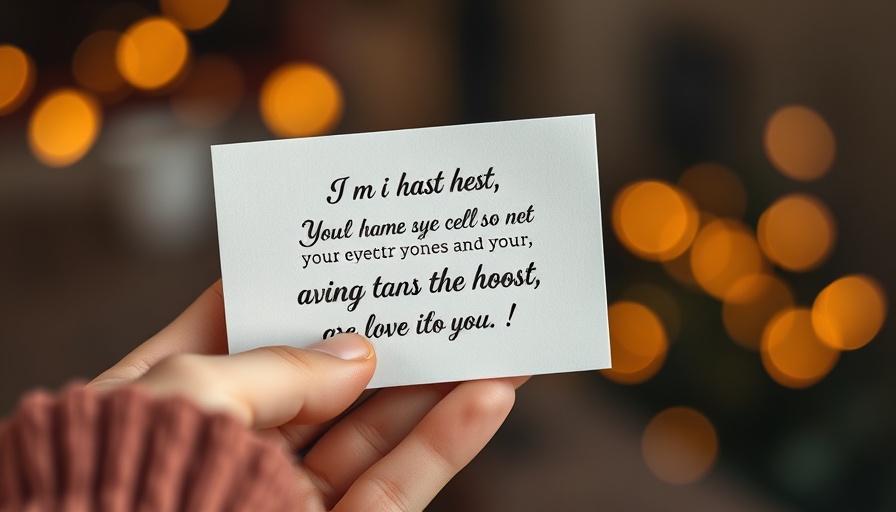 I m i hast hest,
Youl hame sye cell so net
your eyettr yones and your,
aving tans the hoost,
are love ifo you. !